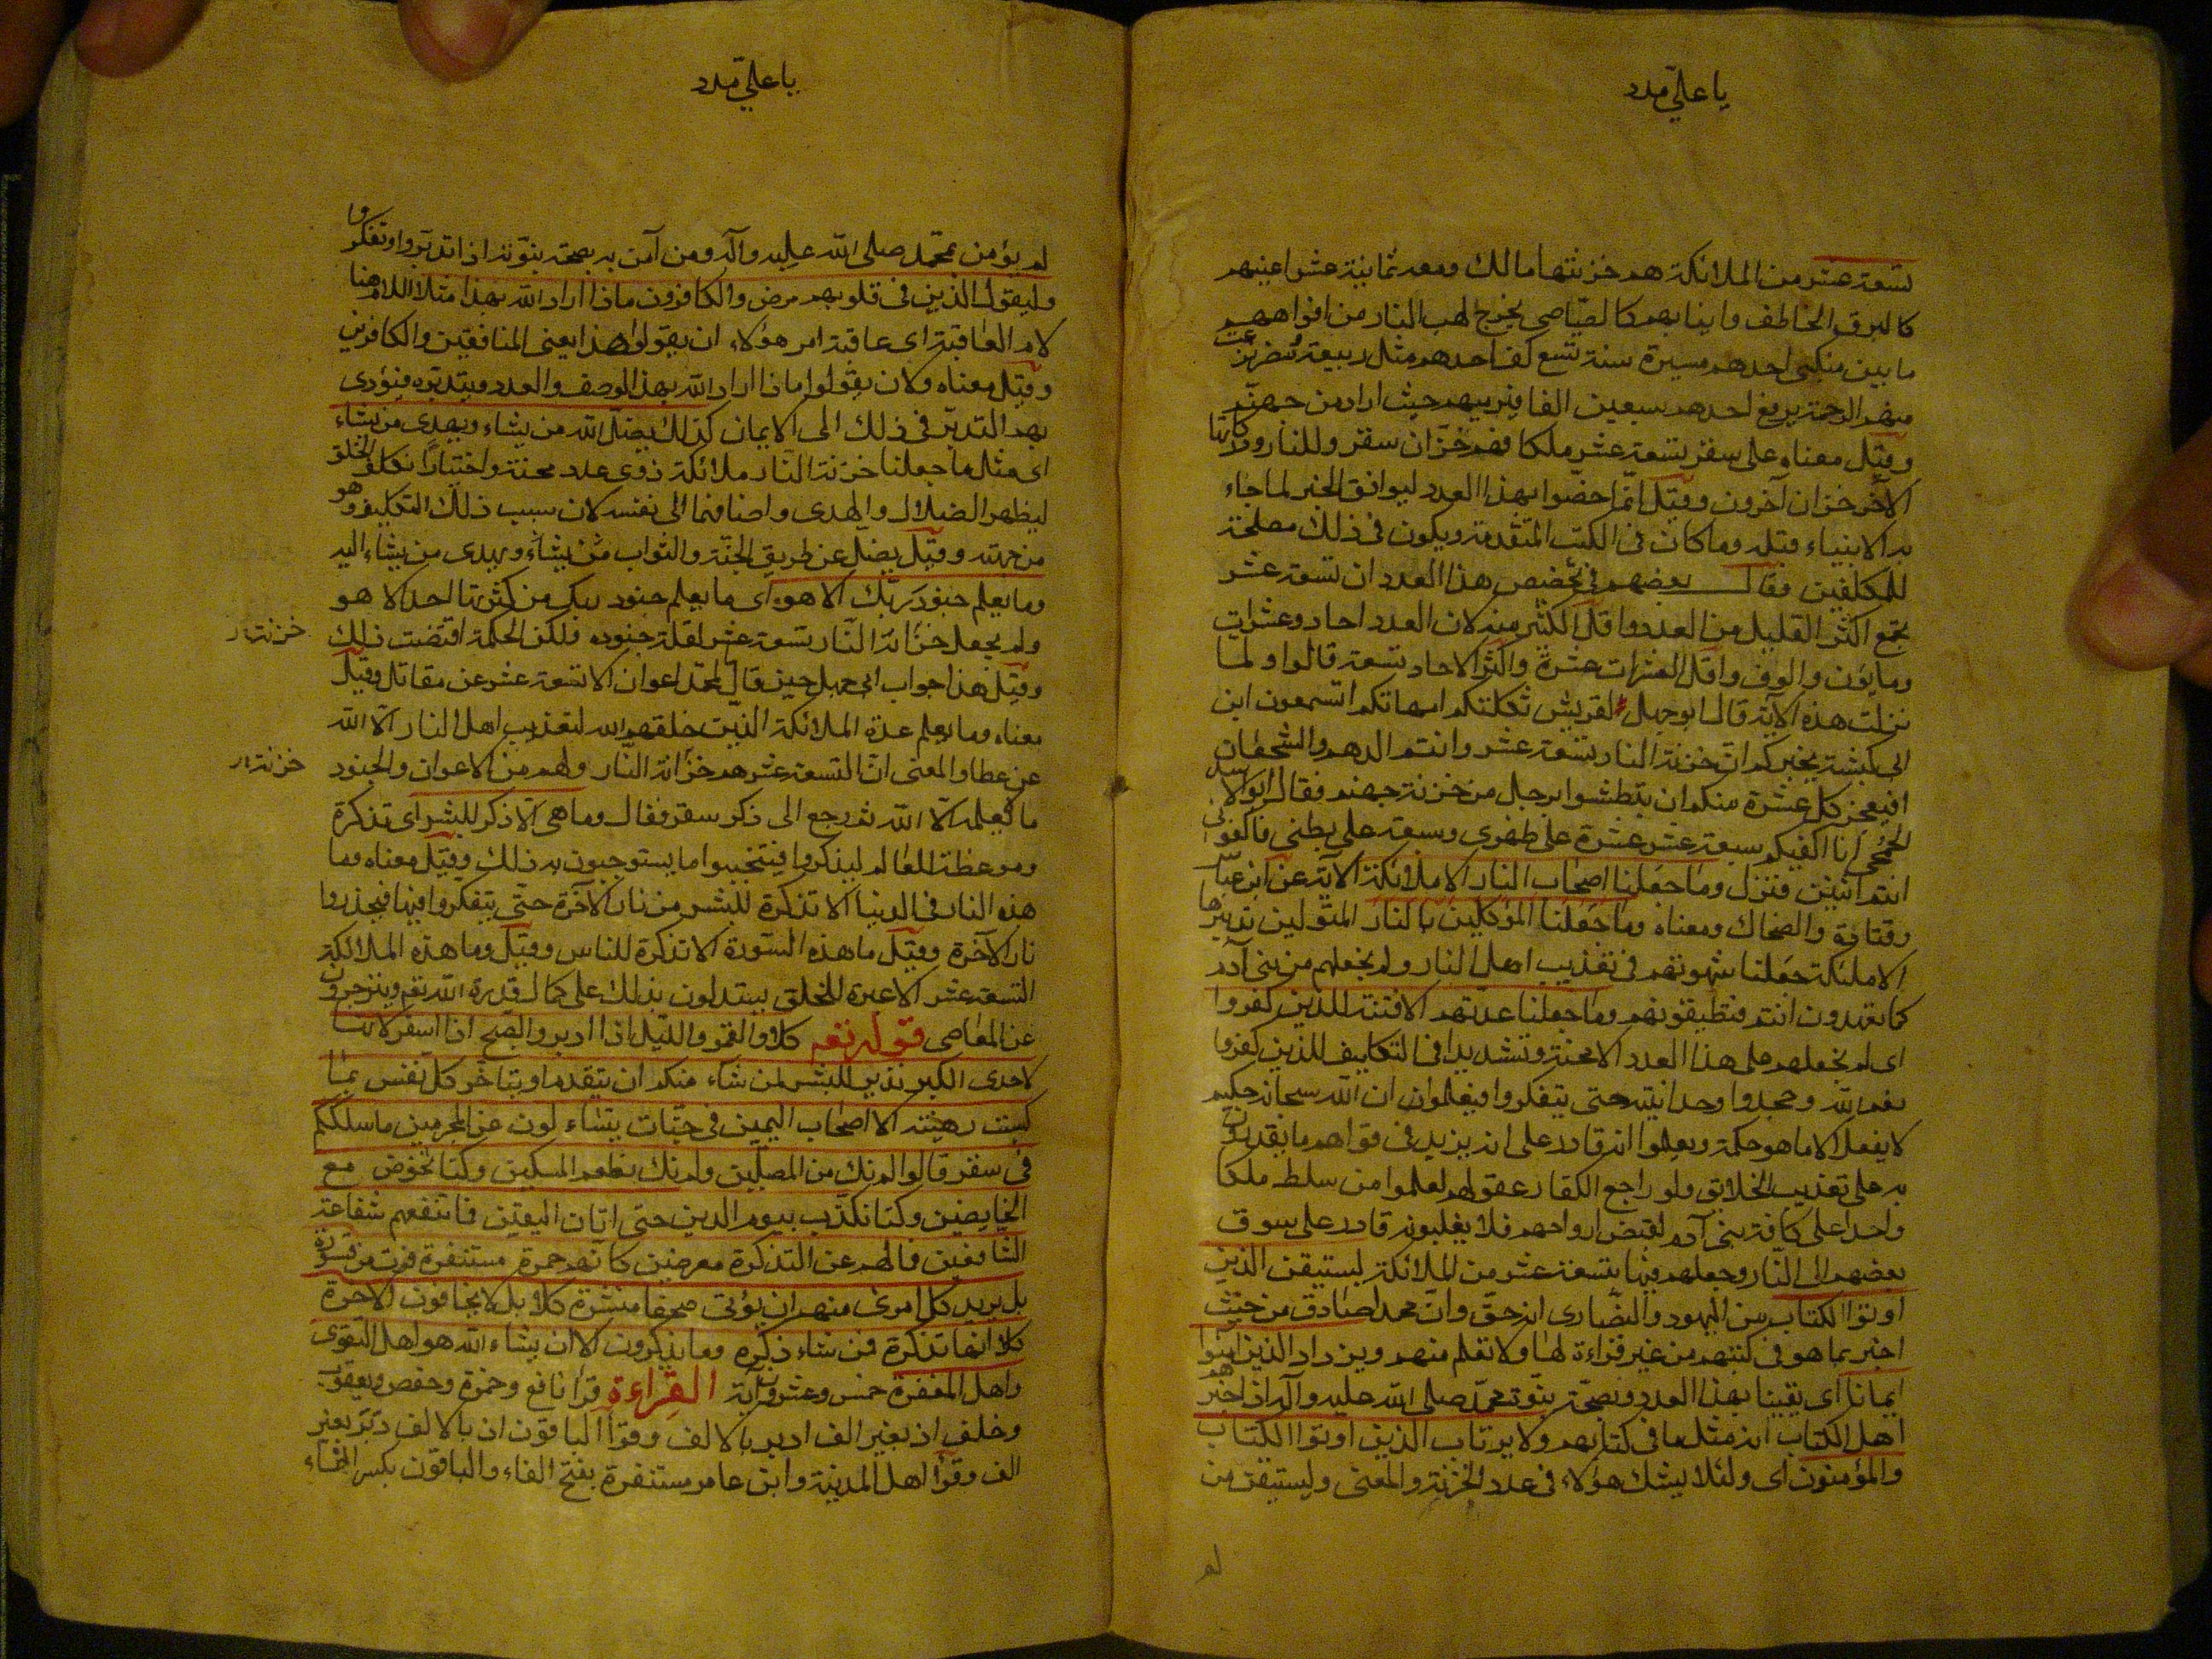 يا علي مدد
تسعة عشر من الملائكة هم خزنتها مالك ومعه ثمانية عشر اعينهم
كالبرق الخاطف وانيابهم كالصياصي يخرج لهب النار من افواههم
ما بين منكبي احدهم مسيرة سنة تسع كف احدهم مثل ربيعة ومضر نزعت
منهم الرحمة يرفع احدهم سبعين الفا فيرميهم حيث اراد من جهنم
وقيل معناه على سقر تسعة عشر ملكا فهم خزان سقر وللنار ودركاتها
الاخر خزان آخرون وقيل انما خصوا بهذا العدد ليوافق الخبر لما جاء
به الانبياء قبله وما كان في الكتب المتقدمة ويكون في ذلك مصلحة
للمكلفين فقال بعضهم في تخصيص هذا العدد ان تسعة عشر
تجمع اكثر القليل من العدد واقل الكثير منه لان العدد احاد وعشرات
ومايون والوف واقل العشرات عشرة واكثر الاحاد تسعة قالوا ولما
نزلت هذه الآية قال ابو جهل لقريش ثكلتكم امهاتكم اتسمعون ابن
ابي كبشة يخبركم ان خزنة النار تسعة عشر وانتم الدهم والشجعان
افيعجز كل عشرة منكم ان يبطشوا برجل من خزنة جهنم فقال ابو الاسد
الجمحي انا اكفيكم سبعة عشر عشرة على ظهري وسبعة على بطني فاكفوني
انتم اثنين فنزل وما جعلنا اصحاب النار الا ملائكة الآية عن ابن عباس
وقتادة والضحاك ومعناه وما جعلنا الموكلين بالنار المتولين تدبيرها
الا ملئكة جعلنا شهوتهم في تعذيب اهل النار ولم نجعلهم من بني آدم
كما تعهدون انتم فتطيقونهم وما جعلنا عدتهم الا فتنة للذين كفروا
اى لم نجعلهم على هذا العدد الا محنة وتشديدا في التكليف للذين كفروا
نعم الله وجحدوا وحدانيته حتى يتفكروا فيعلموا ان الله سبحانه حكيم
لا يفعل الا ما هو حكمة ويعلموا انه قادر على ان يزيد في قواهم ما يقدرون
به على تعذيب الخلايق ولو راجع الكفار عقولهم لعلموا من سلط ملكا
واحدا على كافة بني آدم لقبض ارواحهم فلا يغلبونه قادر على سوق
بعضهم الى النار وجعلهم فيها بتسعة عشر من الملائكة ليستيقن الذين
اوتوا الكتاب من اليهود والنصارى انه حق وان محمدا صادق من حيث
اخبر بما هو في كتبهم من غير قراءة لها ولا تعلم منهم ويزداد الذين آمنوا
ايمانا اى يقينا بهذا العدد وبصحة نبوة محمد صلى الله عليه وآله اذا اخبرهم
اهل الكتاب انه مثل ما في كتابهم ولا يرتاب الذين اوتوا الكتاب
والمؤمنون اى ولئلا يشك هؤلاء في عدد الخزنة والمعنى وليستيقن من
لم
يا علي مدد
لم يؤمن بمحمد صلى الله عليه وآله ومن آمن به بصحة نبوته اذا تدبروا وتفكروا
وليقول الذين في قلوبهم مرض والكافرون ماذا اراد الله بهذا مثلا اللام هنا
لام العاقبة اى عاقبة امر هؤلاء ان يقولوا هذا يعنى المنافقين والكافرين
وقيل معناه ولان يقولوا ماذا اراد الله بهذا الوصف والعدد ويتدبروه فيؤدى
بهم التدبر في ذلك الى الايمان كذلك يضل الله من يشاء ويهدى من يشاء
اى مثل ما جعلنا خزنة النار ملائكة ذوى عدد محنة واختبارا نكلف الخلق
ليظهر الضلال والهدى واضافهما الى نفسه لان سبب ذلك التكليف وهو
من جهته وقيل يضل عن طريق الجنة والثواب من يشاء ويهدى من يشاء اليه
وما يعلم جنود ربك الا هو اى ما يعلم جنود ربك من كثرتها احد الا هو
ولم يجعل خزانة النار تسعة عشر لقلة جنوده ولكن الحكمة اقتضت ذلك
خزنة
وقيل هذا جواب ابي جهل حين قال ما لمحمد اعوان الا تسعة عشر عن مقاتل وقيل
معناه وما يعلم عدة الملائكة الذين خلقهم الله لتعذيب اهل النار الا الله
عن عطا والمعنى ان التسعة عشر هم خزانة النار ولهم من الاعوان والجنود
خزنة
ما لا يعلمه الا الله ثم رجع الى ذكر سقر فقال وما هى الا ذكر للبشر اى تذكرة
وموعظة للعالم ليذكروا فيتجنبوا ما يستوجبون به ذلك وقيل معناه وما
هذه النار في الدنيا الا تذكرة للبشر من نار الآخرة حتى يتفكروا فيها فيحذروا
نار الآخرة وقيل ما هذه السورة الا تذكرة للناس وقيل وما هذه الملائكة
التسعة عشر الا عبرة للخلق يستدلون بذلك على كمال قدرة الله تعم وينزجرون
عن المعاصى قوله تعم كلا والقمر والليل اذا ادبر والصبح اذا اسفر انها
لاحدى الكبر نذيرا للبشر لمن شاء منكم ان يتقدم او يتاخر كل نفس بما
كسبت رهينة الا اصحاب اليمين في جنات يتساءلون عن المجرمين ما سلككم
في سقر قالوا لم نك من المصلين ولم نك نطعم المسكين وكنا نخوض مع
الخايضين وكنا نكذب بيوم الدين حتى اتان اليقين فما تنفعهم شفاعة
الشافعين فما لهم عن التذكرة معرضين كانهم حمرة مستنفرة فرت من قسورة
بل يريد كل امرئ منهم ان يؤتى صحفا منشرة كلا بل لا يخافون الاخرة
كلا انها تذكرة فمن شاء ذكره وما يذكرون الا ان يشاء الله هو اهل التقوى
واهل المغفرة خمس وعشرون آية القراءة قرأ نافع وحمزة وحفص ويعقوب
وخلف اذ بغير الف ادبر بالالف وقرأ الباقون اذا بالالف دبر بغير
الف وقرأ اهل المدينة وابن عامر مستنفرة بفتح الفاء والباقون بكسر الفاء